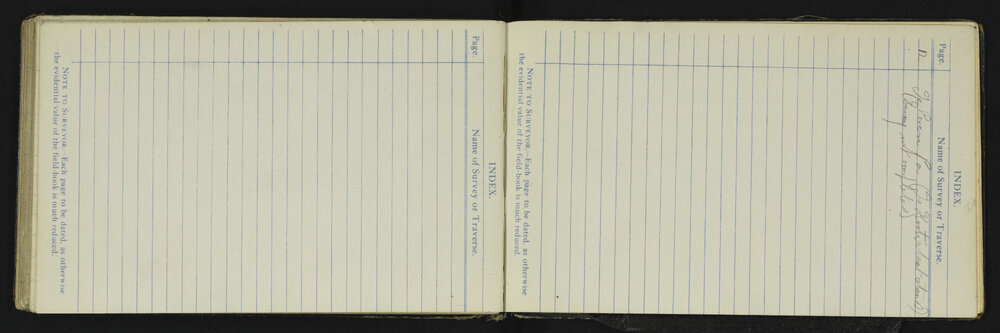 INDEX.
Page.
Name of Survey or Traverse.
(Survey not completed)
NOTE TO SURVEYOR.—Each page to be dated, as otherwise
the evidential value of the field-book is much reduced.
INDEX.
Page.
Name of Survey or Traverse.
NOTE TO SURVEYOR.—Each page to be dated, as otherwise
the evidential value of the field-book is much reduced.